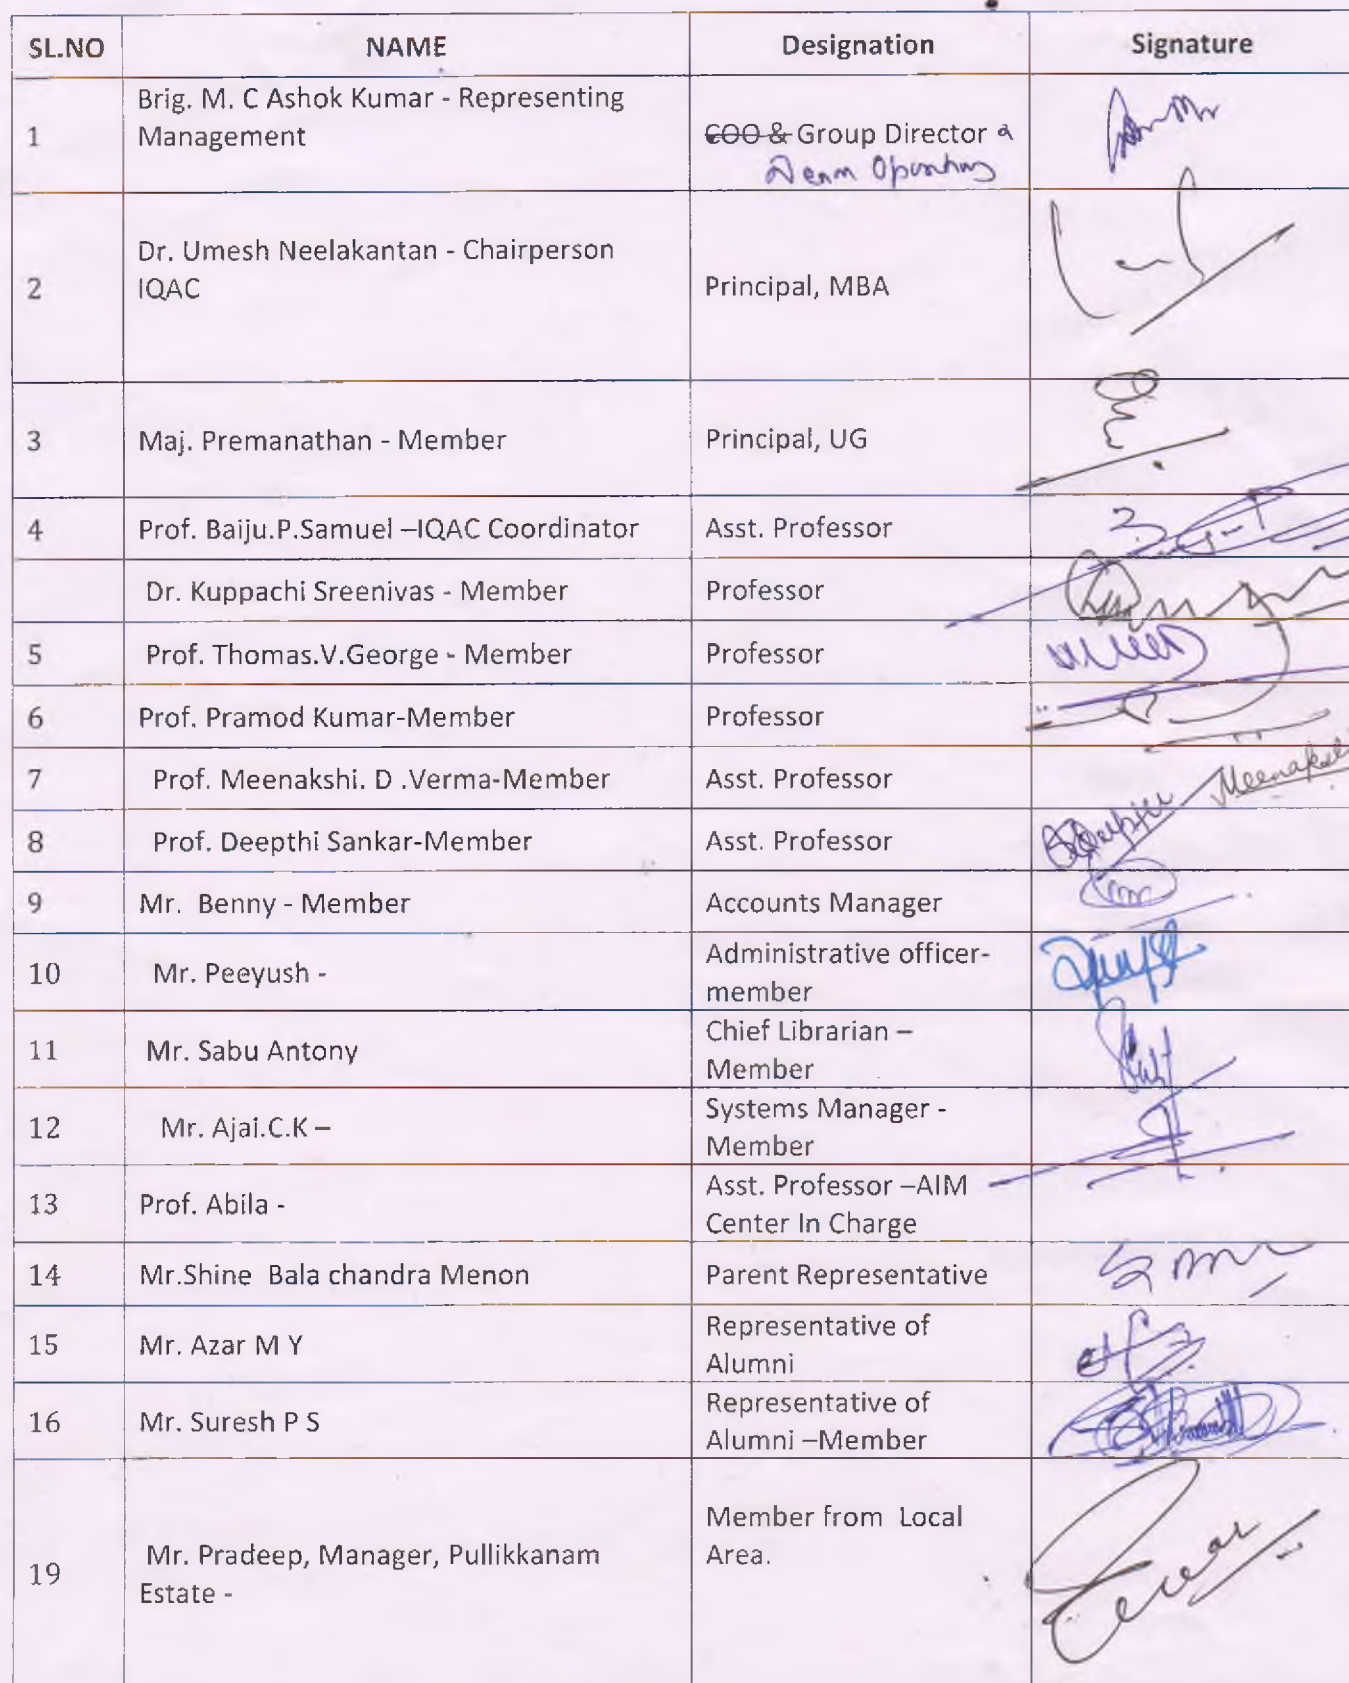 SL.NO NAME Designation Signature
Brig. M. C Ashok Kumar - Representing
1 Management COO & Group Director &
Dean Operations
Dr. Umesh Neelakantan - Chairperson
2 IQAC Principal, MBA
3 Maj. Premanathan - Member Principal, UG
4 Prof. Baiju.P.Samuel –IQAC Coordinator Asst. Professor
Dr. Kuppachi Sreenivas - Member Professor
5 Prof. Thomas.V.George - Member Professor
6 Prof. Pramod Kumar-Member Professor
7 Prof. Meenakshi. D .Verma-Member Asst. Professor Meenakshi
8 Prof. Deepthi Sankar-Member Asst. Professor
9 Mr. Benny - Member Accounts Manager
10 Mr. Peeyush - Administrative officer-
member
11 Mr. Sabu Antony Chief Librarian –
Member
12 Mr. Ajai.C.K – Systems Manager -
Member
13 Prof. Abila - Asst. Professor –AIM
Center In Charge
14 Mr.Shine Bala chandra Menon Parent Representative
15 Mr. Azar M Y Representative of
Alumni
16 Mr. Suresh P S Representative of
Alumni –Member
Member from Local
Area.
19 Mr. Pradeep, Manager, Pullikkanam
Estate -